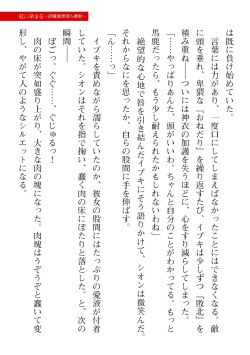 紅に染まる
は既に負け始めていた。
　言葉には力があり、一度口にしてしまえばなかったことにはできなくなる。敵
に頭を垂れ、卑猥な『おねだり』を繰り返すたび、イブキは少しずつ『敗北』を
積み重ね――ついには神衣の加護を失うほどに、心をすり減らしてしまった。
「……やっぱりあんた、頭がいいわ。ちゃんと自分のことがわかってる。もっと
馬鹿だったら、もう少し耐えられたかもしれないわね」
　絶望的な心地で唇を引き結んだイブキにそう語りかけて、シオンは微笑んだ。
それからなにを思ったか、自らの股間に手を伸ばす。
「ん……っ」
　イブキを責めながら濡らしていたのか、彼女の股間にはたっぷりの愛液が付着
していた。シオンはそれを指で掬い、蠢く肉の床にぽたりと落とした。と、次の
瞬間――
　ぼこっ、ぐぐ……、ぐじゅるっ！
　肉の床が突如盛り上がり、大きな肉の塊になった。肉塊はうぞうぞと蠢いて変
形し、やがて人のようなシルエットになる。